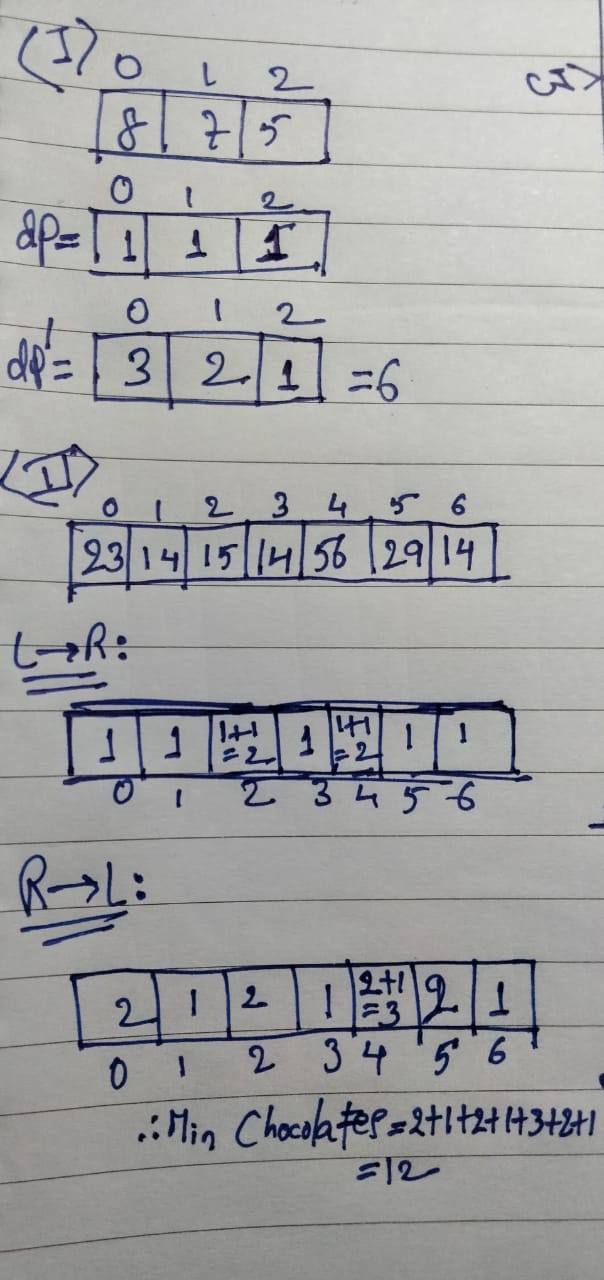 (I) 0 1 2
8 7 5
0 1 2
dp= 1 1 1
0 1 2
dp'= 3 2 1 =6
(II)
0 1 2 3 4 5 6
23 14 15 14 56 29 14
L→R:
1 1 1+1=2 1 1+1=2 1 1
0 1 2 3 4 5 6
R→L:
2 1 2 1 2+1=3 2 1
0 1 2 3 4 5 6
∴Min Chocolates=2+1+2+1+3+2+1
=12